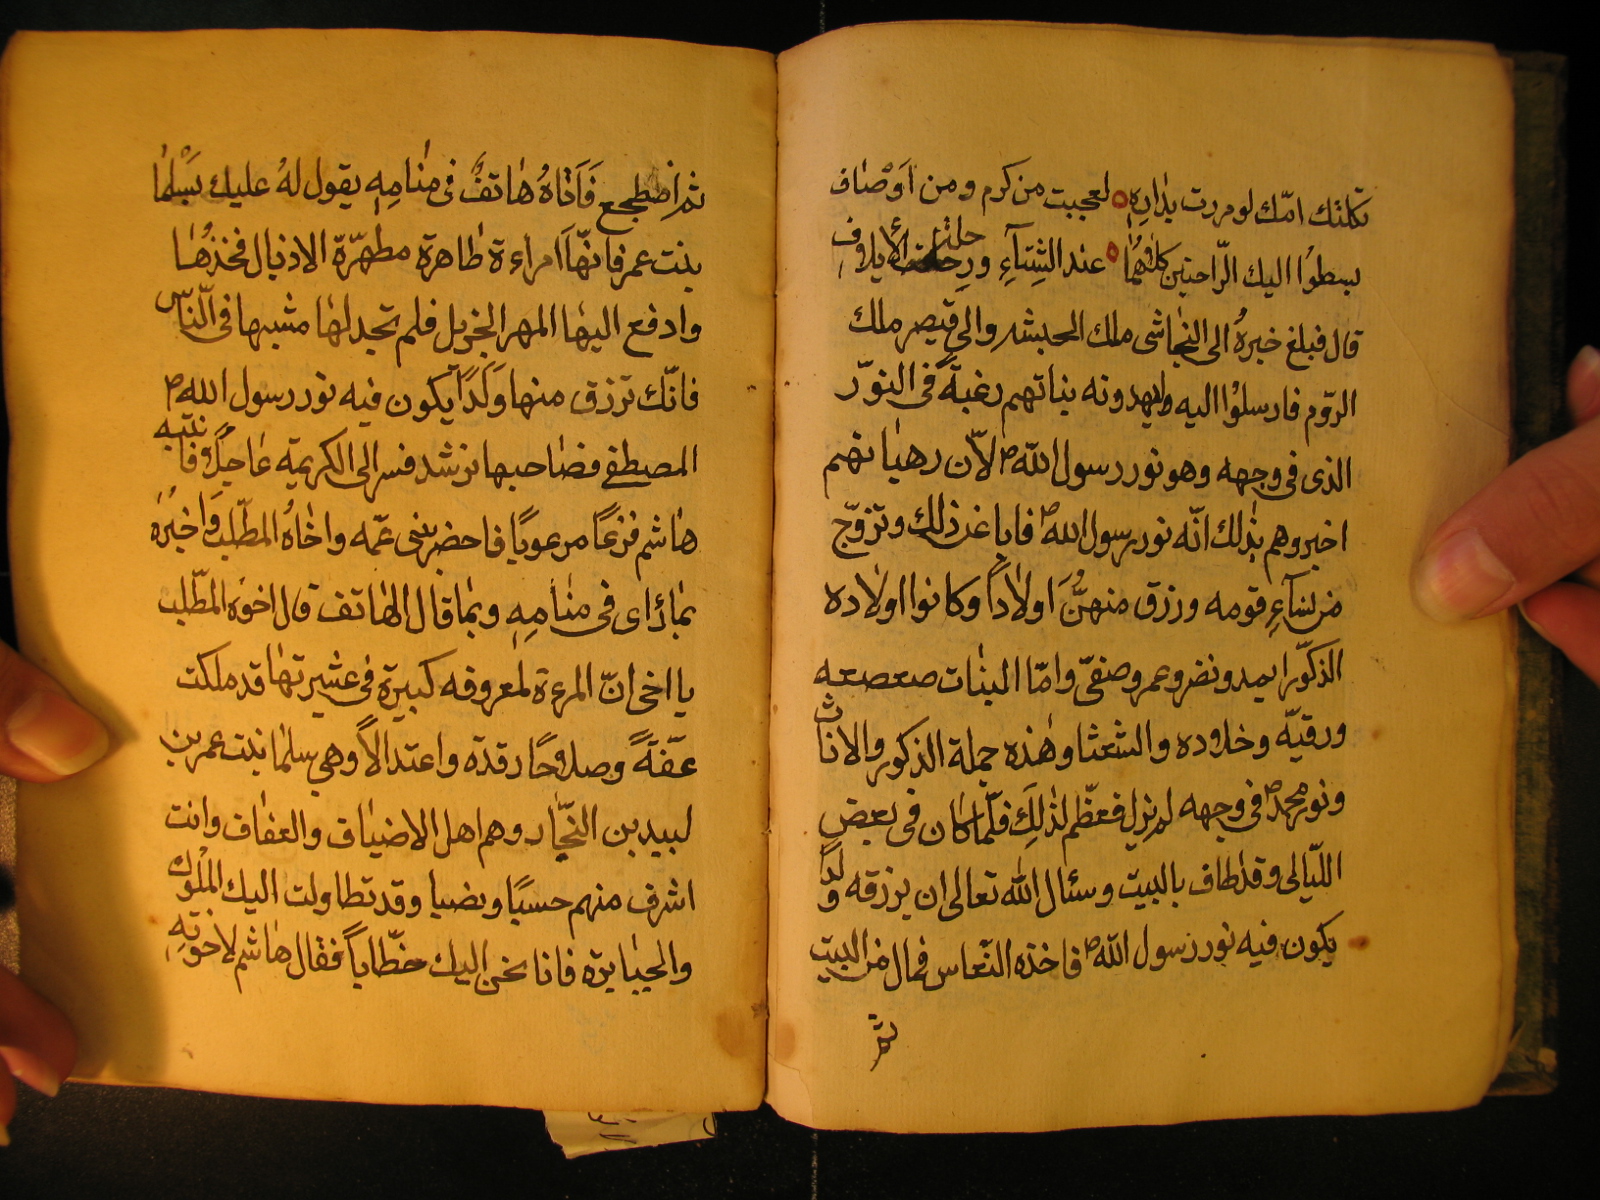 ثكلتك امّك لو مررت بدٰارِهِ لعجبت من كرم و من اَوْصٰاف
بسطوُا اليك الرّاحتين كلٰاهُمٰا عند الشِتآءِ و رحلة الأيلافِ
قال فبلغ خبرهُ الى النجٰاشى ملك الحبشه والى قيصر ملك
الرّوم فارسلوُا اليه و يهدونه بناتهم رغبةً فى النوّر
الذى فى وجهه وهو نور رسول اللّه ص لاٰنّ رهبٰانهم
اخبروهم بذٰلك انّه نور رسول اللّه ص فابا عن ذٰلك وتزوّج
من نسآءِ قومه ورزق منهنَّ اولٰاداً وكانوا اولٰاده
الذكوّر اسد و نضر و عمر و صفىّ وامّا البنٰات صعصعه
ورقيّه وخلٰاده والشعثا وهٰذه جملة الذكور والاناث
ونور محمد ص فى وجهه لم يزل فعظّم لذٰلِكَ فلّمٰا كٰان فى بعضِ
الليّالى وقد طٰاف بالبيت وسئال اللّه تعالى ان يرزقه ولدًا
يكون فيه نور رسول اللّه ص فاخذه النّعٰاس فمال من البيت
ثمّ
ثمّ اضطجع فَاَتٰاهُ هٰاتفٌ فى مَنٰامِهِ يقول لهُ عليك بسَلْمٰا
بنت عمر فانّهٰا امراءة طٰاهرة مطهّرة الاذيال فخذهُٰا
وادفع اليهٰا المهر الجزيل فلم تجد لهٰا مشبها فى النّاس
فانّك ترزق منها وَلَدًا يكون فيه نور رسول اللّه ص
المصطفى فصٰاحبها ترشد فسر الى الكريمة عٰاجلًا فانتبه
هٰاشم فزعًا مرعوبًا فاحضر بنى عمّه واخٰاهُ المطّلب وَاخبرهُ
بمٰا رٰاى فى منٰامِهِ وبمٰا قال الهٰاتف قال اخوُه المطّلب
يا اخى انّ المرءة لمعروفه كبيرة فى عشيرتهٰا قد ملكت
عفّةً وصلٰاحًا رقدّه واعتدالاً وهى سلمٰا بنت عمر بن
لبيد بن النجّٰار وهم اهل الاضيٰاف والعفٰاف وانت
اشرف منهم حسبًا و نصبا وقد تطاولت اليك المُلوُك
والجبٰابرة فانا نحن اليك خطّاباً فقال هٰاشم لاخوتِهِ